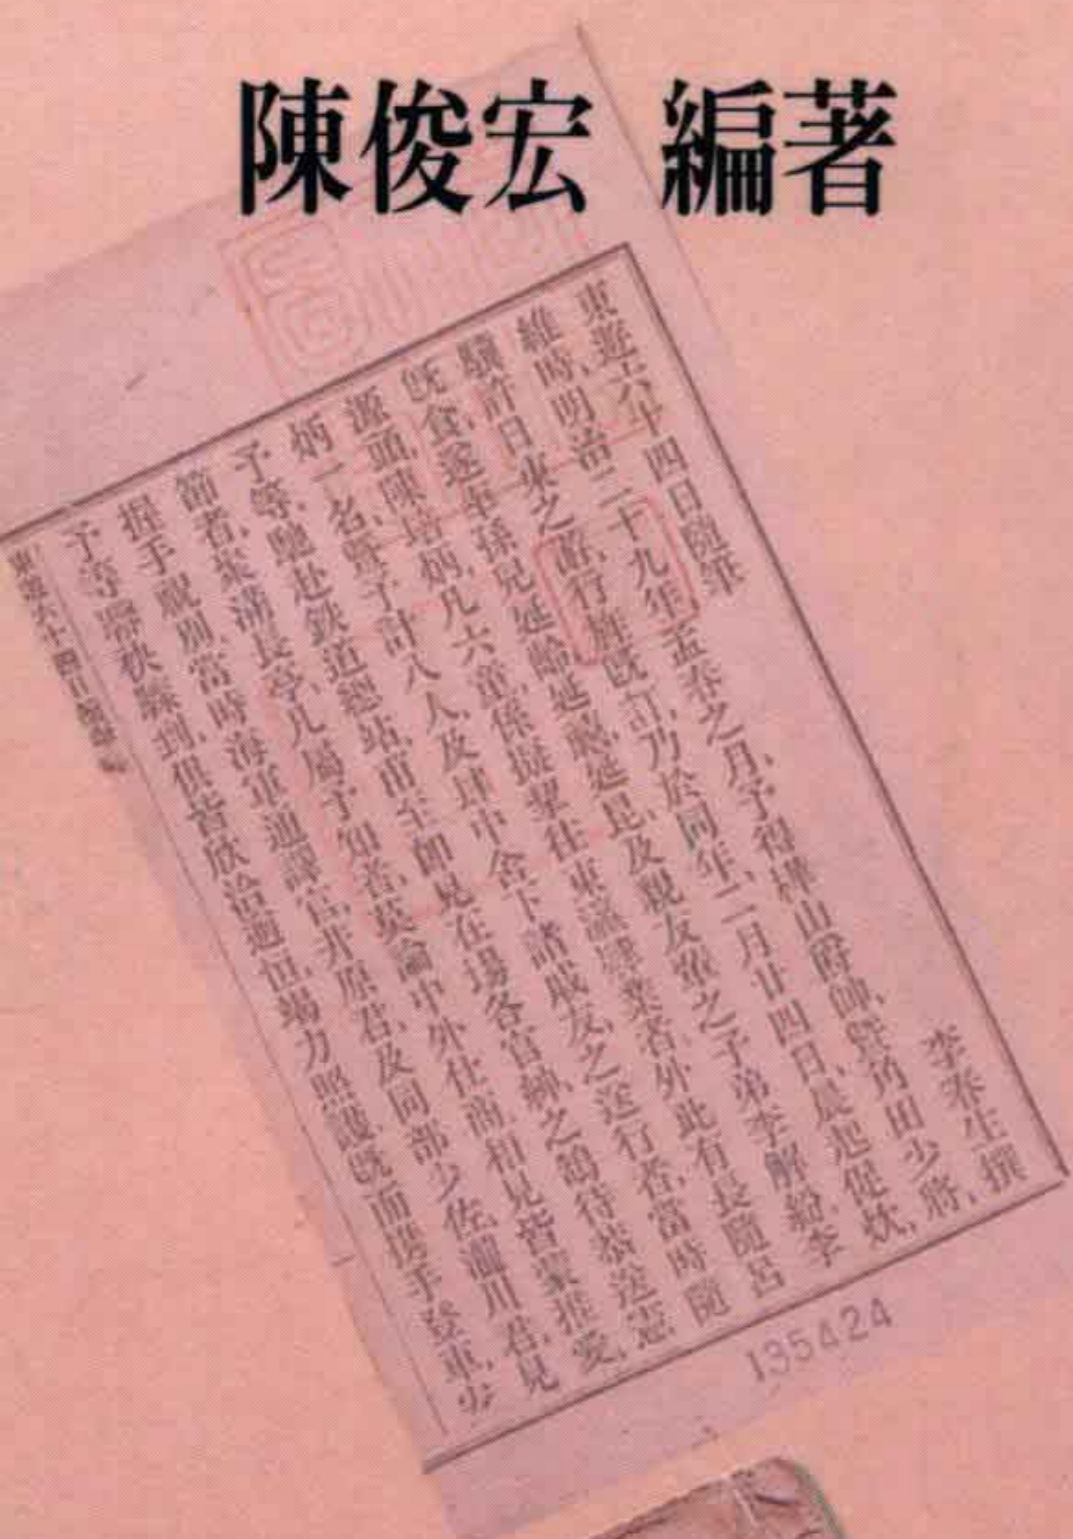 陳俊宏 編著
東遊六十四日隨筆
李春生撰
維時、明治二十九年、孟春之月、予得樺山爵帥、暨角田少將、
許日東之游、行旌既訂、乃於同年、二月廿四日、晨起促炊、
既食、遂率孫兒延齡延禧延昆、及親友輩之子弟李解紛、李
源頭、陳培炳、凡六童、係擬挈往東瀛肄業者、外此有長隨呂
炳一名、暨予計八人、及肆中舍下諸戚友之送行者、當時隨
予等、馳赴鉄道總站、甫至、即見在場各官紳、之鵠待恭送、憲
節者、案滿長亭、凡屬予知者、英論中外仕商、相見皆蒙推愛、
握手敘別、當時海軍通譯官、井原君、及同部少佐、瀧川君、見
予等聯袂縣到、俱皆欣洽逾恒、竭力照護、既而攜手登車、少
東遊六十四日隨筆
135424